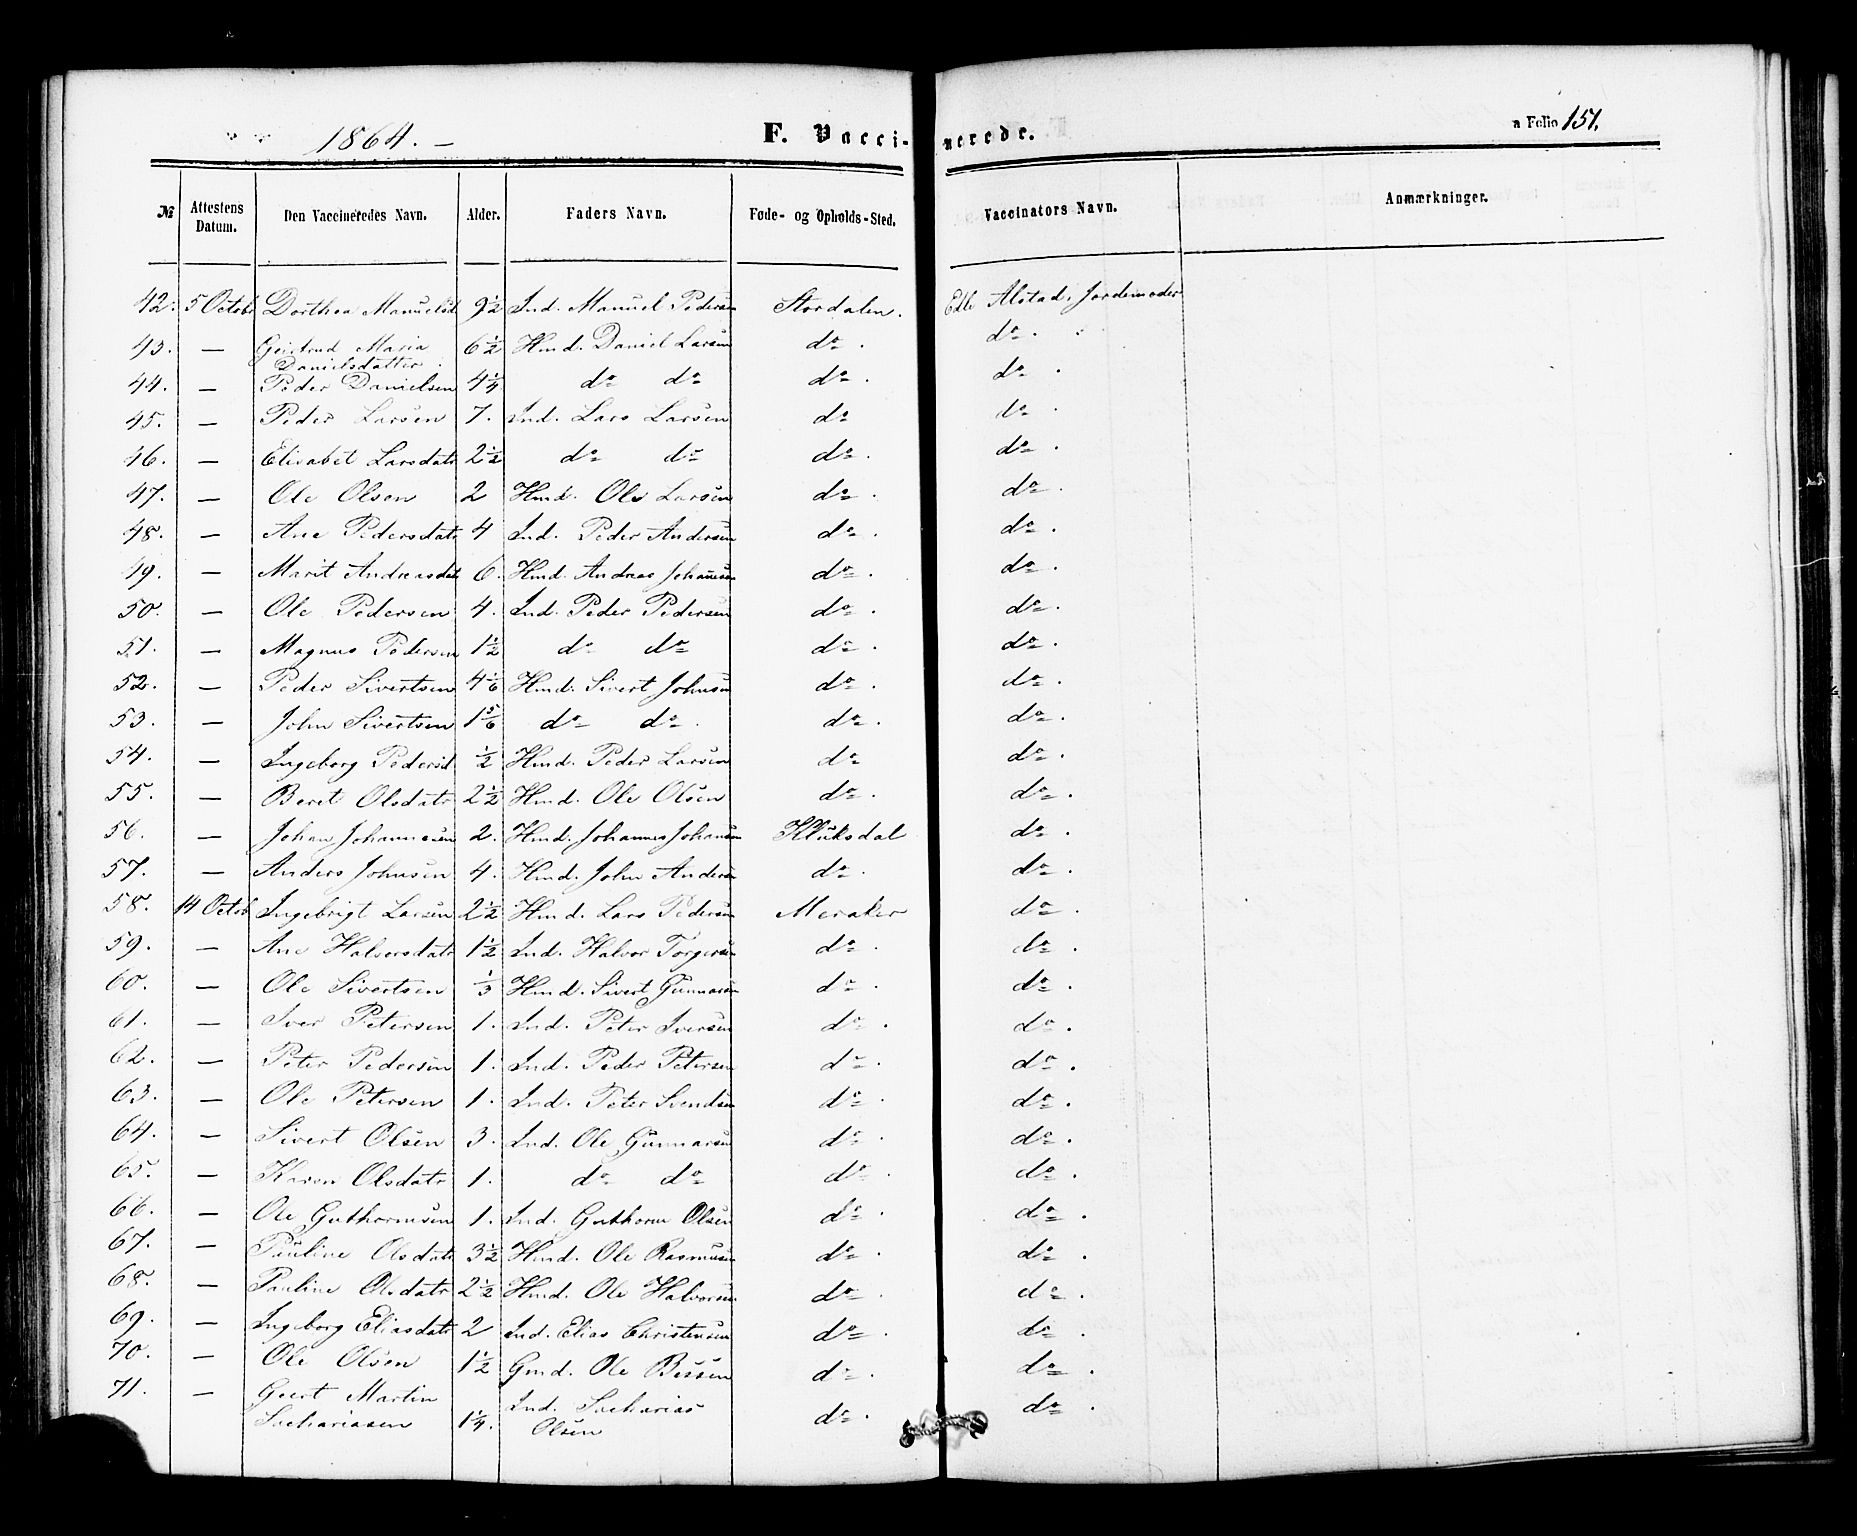 1864. –
F. Vaccinerede.
a Folio 151.
№ Attestens Datum. Den Vaccineredes Navn. Alder. Faders Navn. Føde- og Opholds-Sted. Vaccinators Navn. Anmærkninger.
42. 5 Octob Dorthea Manuelsd 9½ Ind. Manuel Pedersen Stordalen. Edle Alstad, Jordemoder
43. — Gjertrud Maria Danielsdatter. 6½ Hmd. Daniel Larsen do. do.
44. — Peder Danielsen 4¼ do do do. do.
45. — Peder Larsen 7. Ind. Lars Larsen do do.
46. — Elisabet Larsdatr 2½ do do do. do.
47. — Ole Olsen 2 Hmd. Ole Larsen do. do.
48. — Ane Pedersdatr 4 Ind. Peder Andersen do. do.
49. — Marit Andreasdat 6. Hmd. Andreas Johansen do. do.
50. — Ole Pedersen 4. Ind. Peder Pedersen do. do.
51. — Magnus Pedersen 1½ do do do. do.
52. — Peder Sivertsen 4⅙ Hmd. Sivert Johnsen do. do.
53. — John Sivertsen 1⅚ do do. do. do.
54. — Ingeborg Pedersd. ½ Hmd. Peder Larsen do do.
55. — Beret Olsdatr 2½ Hmd. Ole Olsen do. do.
56. — Johan Johannesen 2. Hmd. Johannes Johansen Kluksdal do.
57. — Anders Johnsen 4. Hmd. John Andersen do. do.
58. 14 Octob Ingebrigt Larsen 2½ Hmd. Lars Pedersen Meraker do.
59. — Ane Halvorsdatr 1½ Ind. Halvor Torgersen do. do.
60. — Ole Sivertsen ⅓ Hmd. Sivert Gunnarsen do. do.
61. — Iver Petersen 1. Ind. Peter Iversen do. do.
62. — Peter Pedersen 1. Ind. Peder Petersen do. do.
63. — Ole Petersen 1. Ind. Peter Svendsen do. do.
64. — Sivert Olsen 3. Ind. Ole Gunnarsen do. do.
65. — Karen Olsdatr 1. do do do. do.
66. — Ole Guthormsen 1. Ind. Guthorm Olsen do. do.
67. — Pauline Olsdatr 3½ Hmd. Ole Rasmusen do. do.
68. — Pauline Olsdatr 2½ Hmd. Ole Halvorsen do. do.
69. — Ingeborg Eliasdatr 2 Ind. Elias Christensen do. do.
70. — Ole Olsen 1½ Gmd. Ole Bessen do. do.
71. — Geert Martin Sachariasen 1¼. Ind. Sacharias Olsen do. do.